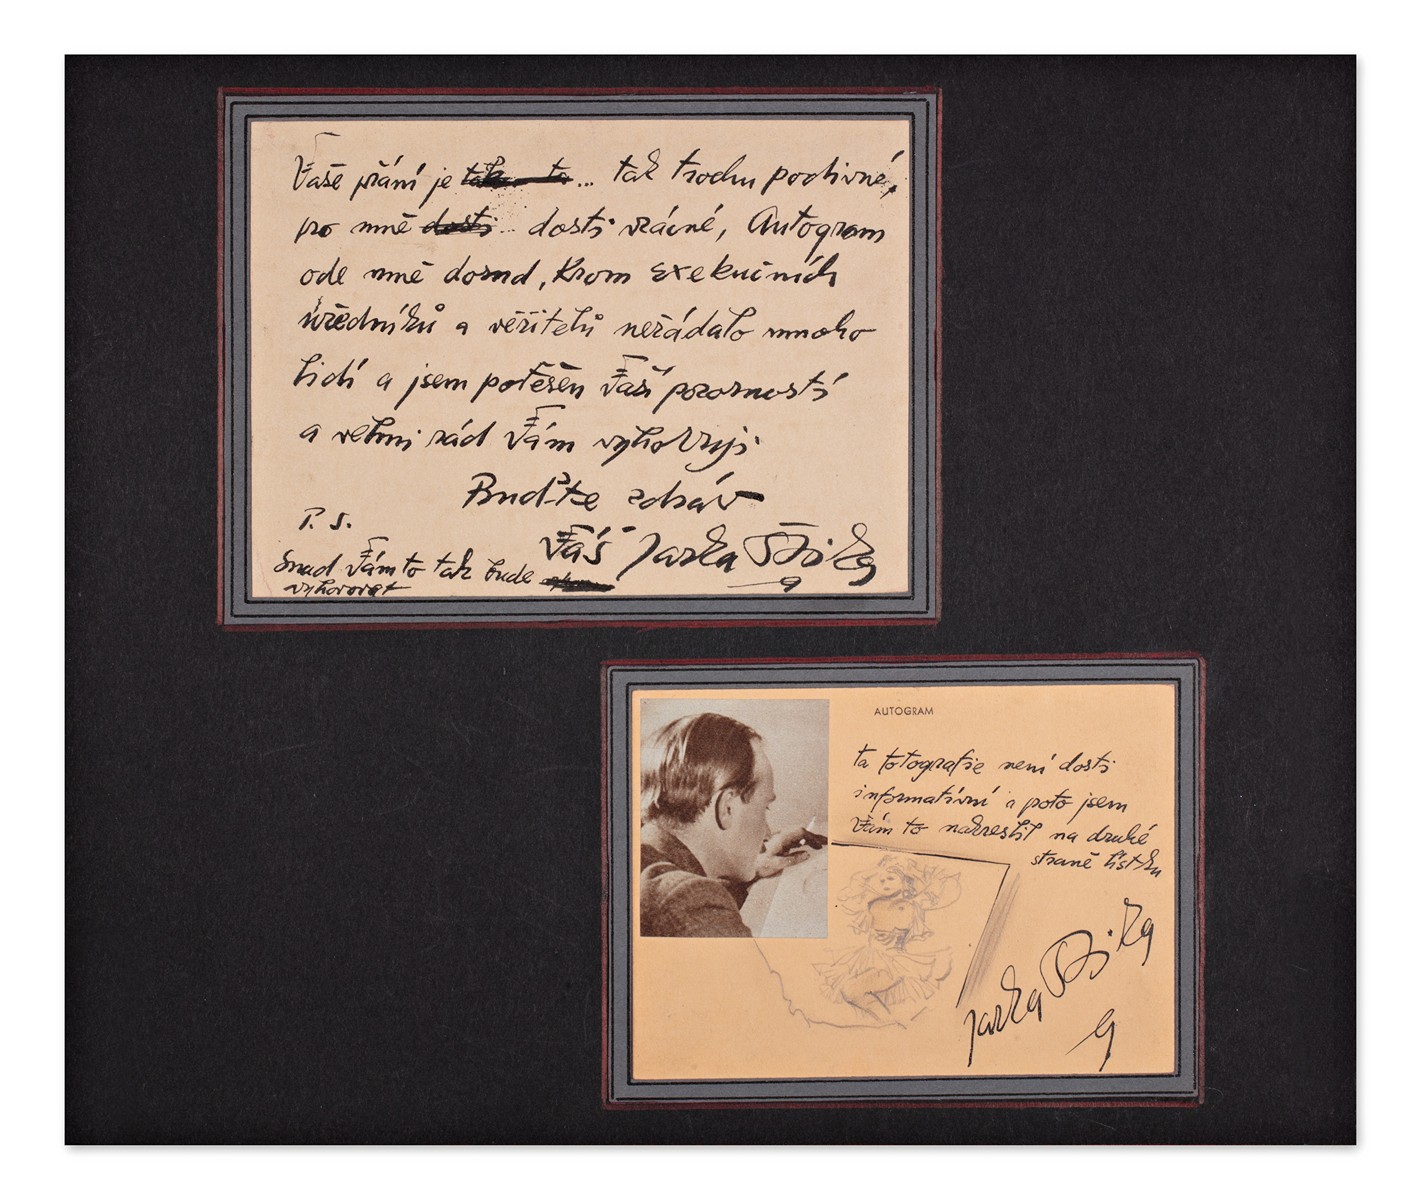 Vaše přání je tak to... tak trochu podivné,
pro mně dosti.. dosti vzácné, Autogram
ode mně dosud, krom exekučních
úředníků a věřitelů nežádalo mnoho
lidí a jsem potěšen Vaší pozorností
a velmi rád Vám vyhovuji.
Buďte zdráv
Váš Jarka Štika
P.S.
Snad Vám to tak bude
vyhovovat
AUTOGRAM
ta fotografie není dosti
informativní a poto jsem
Vám to nakreslil na druhé
straně lístku
Jarka Štika